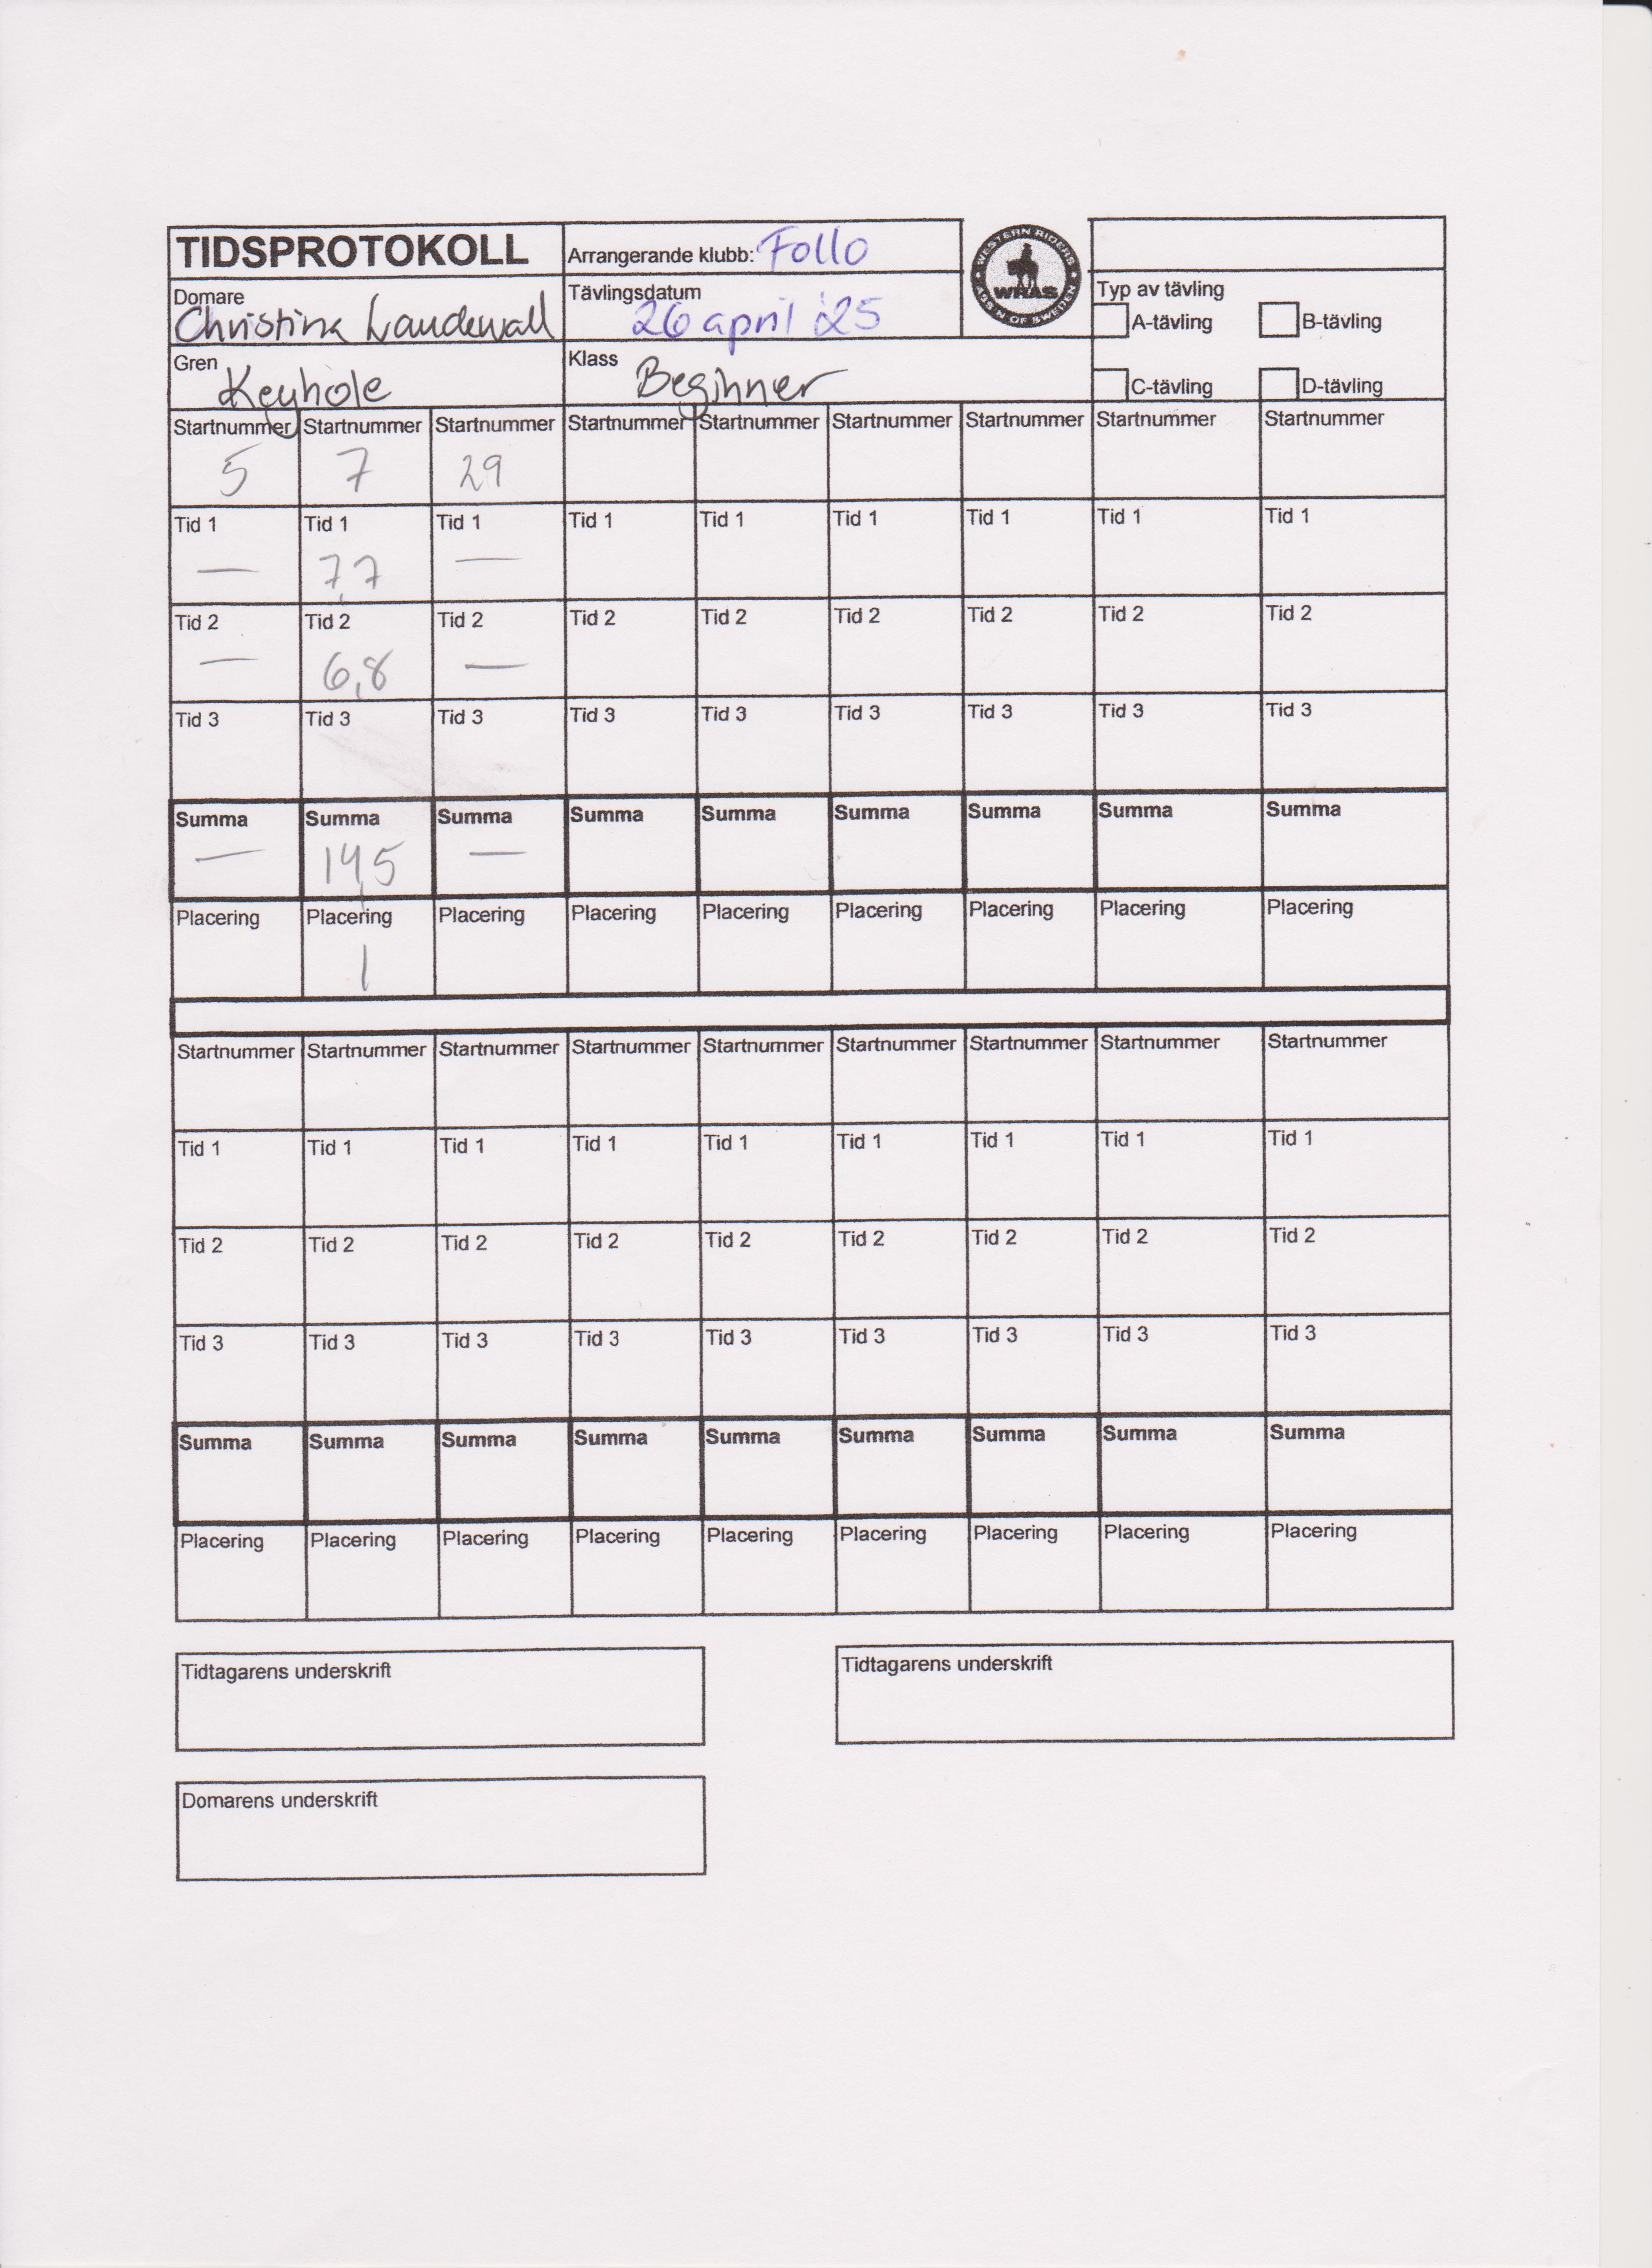 TIDSPROTOKOLL
Arrangerande klubb: Follo
WESTERN RIDERS ASS'N OF SWEDEN
WRAS
Domare
Christina Landewall
Tävlingsdatum
26 april '25
Typ av tävling
A-tävling B-tävling
Gren
Keyhole
Klass
Beginner
C-tävling D-tävling
Startnummer Startnummer Startnummer Startnummer Startnummer Startnummer Startnummer Startnummer Startnummer
5 7 29
Tid 1 Tid 1 Tid 1 Tid 1 Tid 1 Tid 1 Tid 1 Tid 1 Tid 1
— 7,7 —
Tid 2 Tid 2 Tid 2 Tid 2 Tid 2 Tid 2 Tid 2 Tid 2 Tid 2
— 6,8 —
Tid 3 Tid 3 Tid 3 Tid 3 Tid 3 Tid 3 Tid 3 Tid 3 Tid 3
Summa Summa Summa Summa Summa Summa Summa Summa Summa
— 14,5 —
Placering Placering Placering Placering Placering Placering Placering Placering Placering
1
Startnummer Startnummer Startnummer Startnummer Startnummer Startnummer Startnummer Startnummer Startnummer
Tid 1 Tid 1 Tid 1 Tid 1 Tid 1 Tid 1 Tid 1 Tid 1 Tid 1
Tid 2 Tid 2 Tid 2 Tid 2 Tid 2 Tid 2 Tid 2 Tid 2 Tid 2
Tid 3 Tid 3 Tid 3 Tid 3 Tid 3 Tid 3 Tid 3 Tid 3 Tid 3
Summa Summa Summa Summa Summa Summa Summa Summa Summa
Placering Placering Placering Placering Placering Placering Placering Placering Placering
Tidtagarens underskrift Tidtagarens underskrift
Domarens underskrift